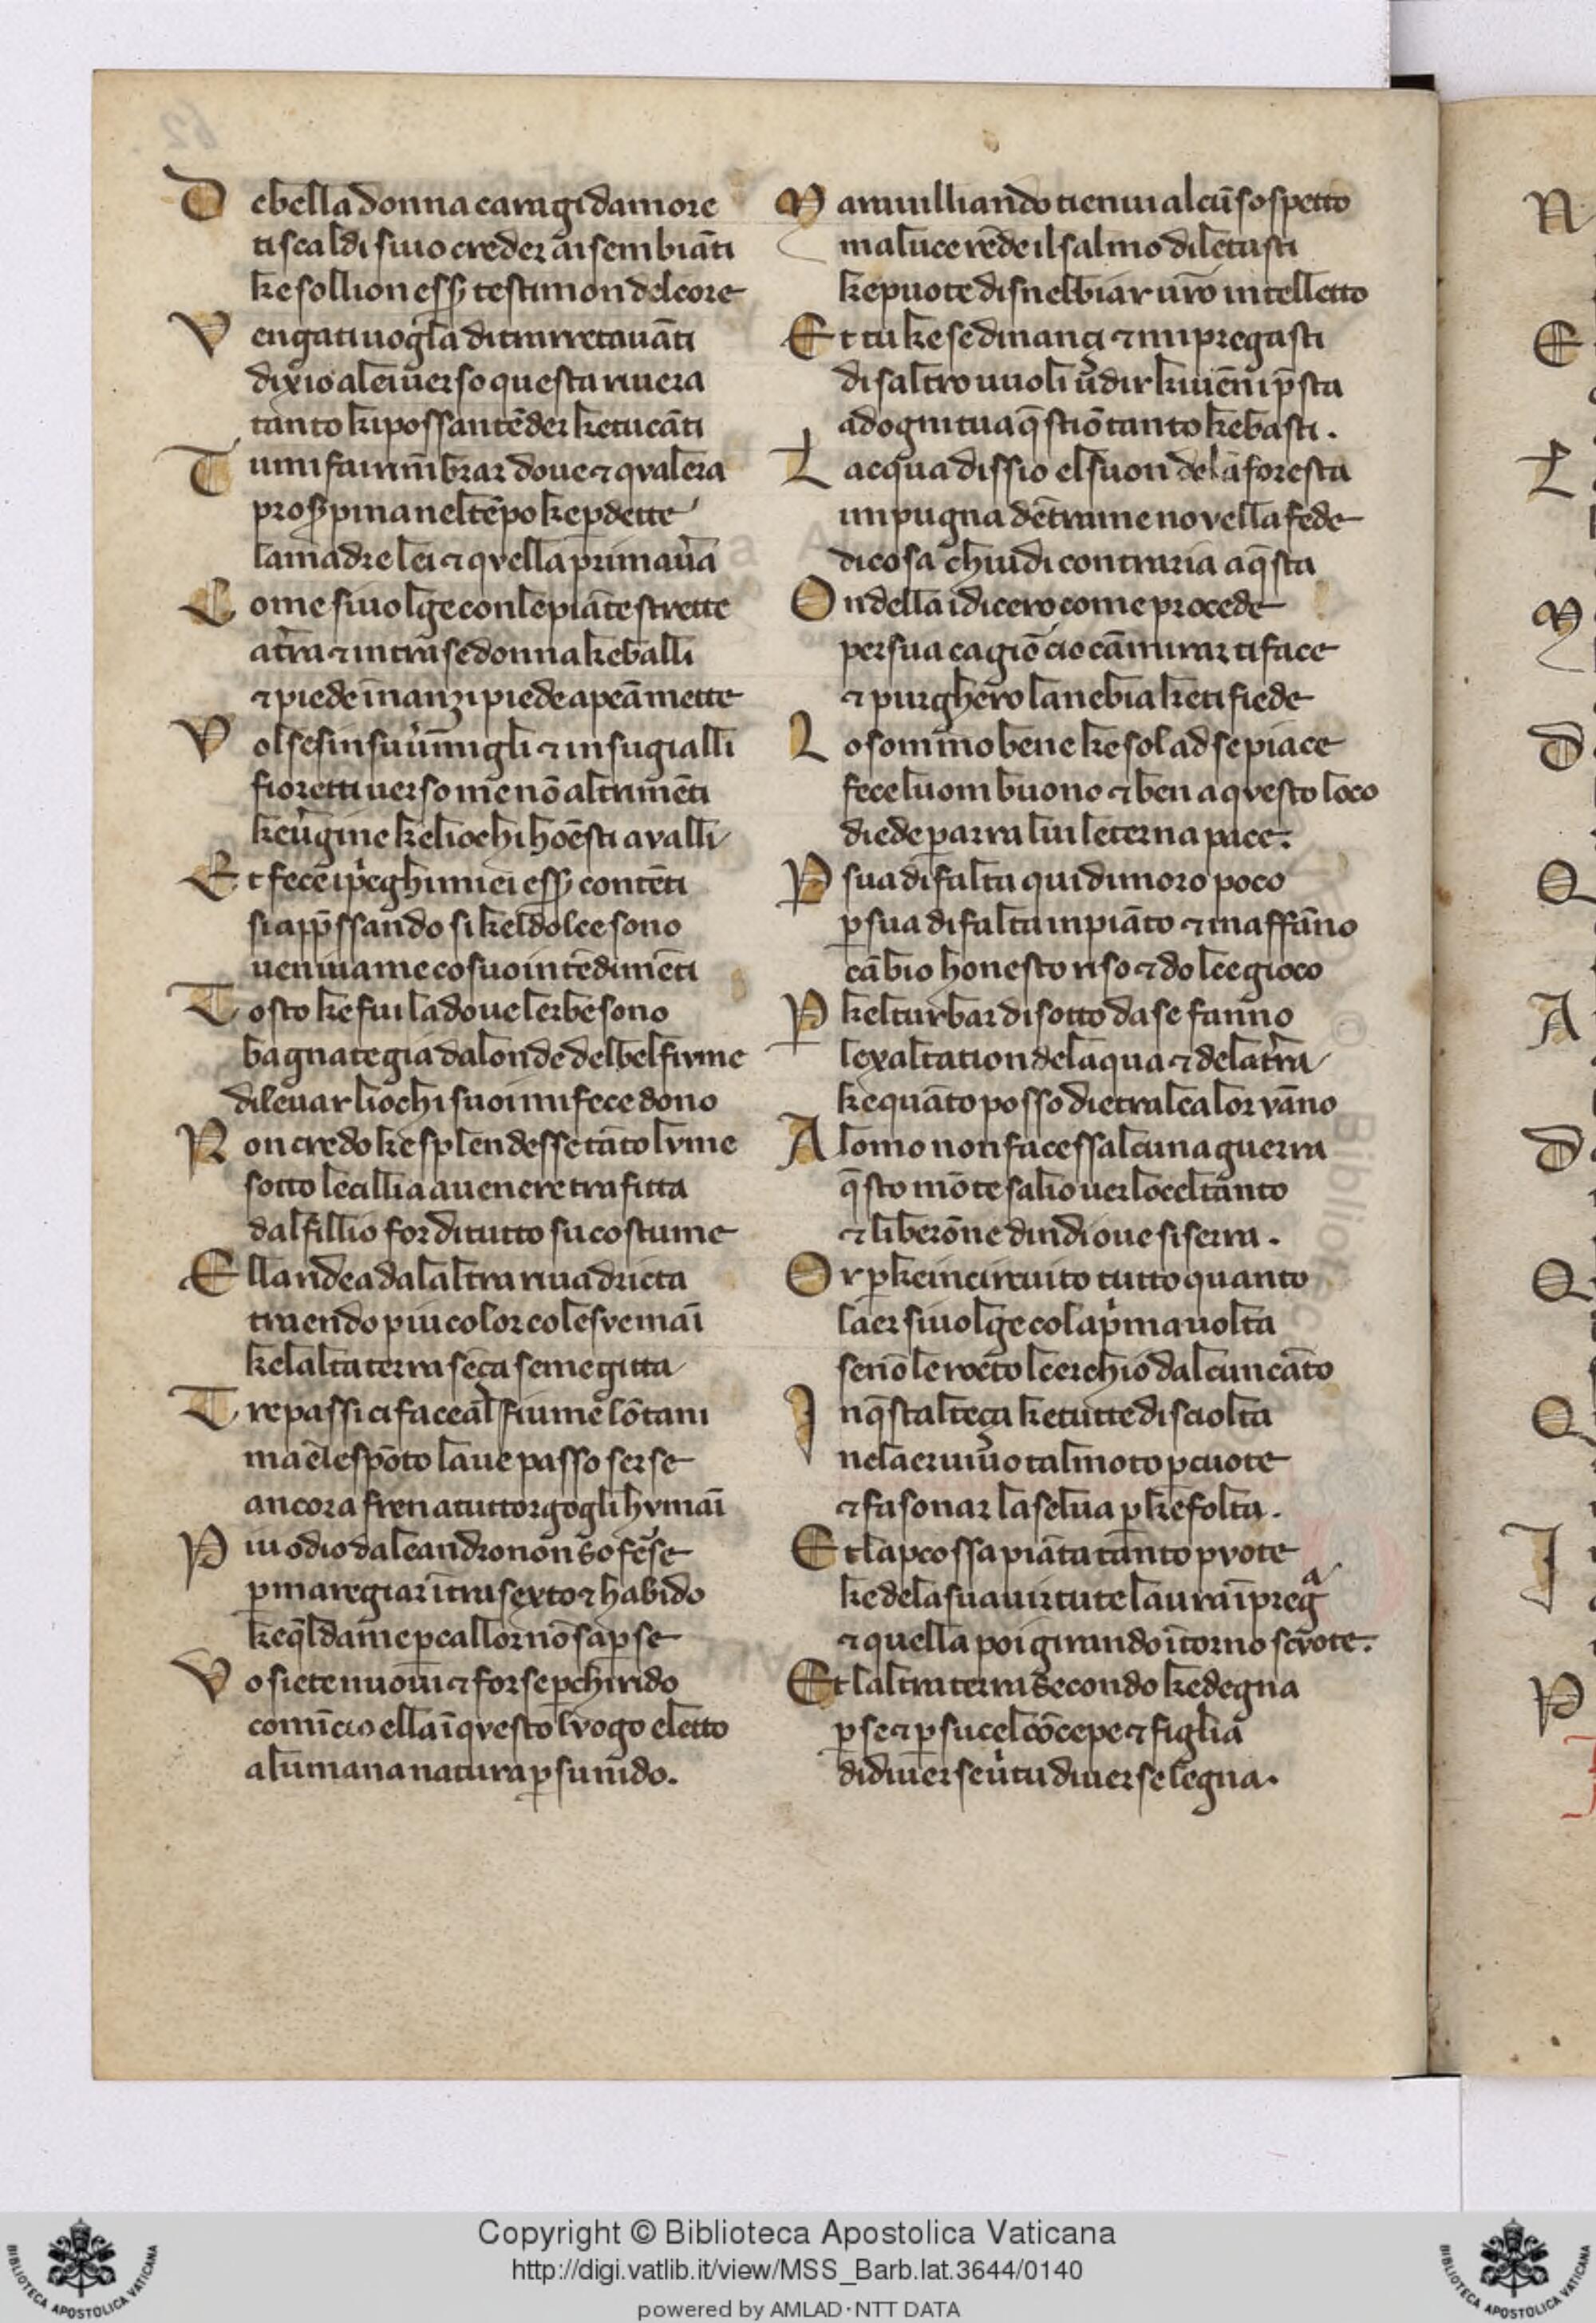 D ebella donna caragidamore
tiscaldi siuo creder aisembiāti
kesoglion essʒ testimon delcore
V engatiuoglia ditrarretauāti
dixio aleiuerso questa riuera
tanto kipossantēder ketucāti
T umifairim̄brar doue ⁊ qvalera
prosʒpina neltēpo kep̱dette
lamadre lei ⁊ qvella primau̓a
C ome siuolge conlepiāte strette
at̄ra ⁊ intrase donna keballi
⁊ piede inanzi piede apeā mette
V olsesi insuu̓migli ⁊ insugialli
fioretti uerso me nō altrimēti
keu̓gine kelliochi hoēsti avalli
E t fece ip̓eghi miei essʒ contēti
siapp̄ssando sikeldolce sono
ueniua me cosuointēdimēti
T osto kefui la doue lerbe sono
bagnate gia dalonde delbel fivme
dileuar liochi suoi mi fece dono
N on credo kesplendesse tāto lvme
sotto lecillia auenere trafitta
dalfillio for ditutto sucostume
E llaridea dalaltra riua dricta
traendo piu color colesvemaī
kelalta terra sēça seme gitta
T re passi ci facea l fiume lōtani
ma elespōto laue passo serse
ancora frena tuttorgogli hvmaī
P iu odio daleandro non soferse
p̱ mareggiar ītra sexto ⁊ habido
keq̄l dame p̱callor nō sap̱se
V o siete nuoui ⁊ forse p̱chirido
comīcio ella īqvesto lvogo eletto
alumana natura p̱ sunido.
M arauilliando tienui alcū sospetto
ma luce rēde il salmo diletasti
kepuote disnebbiar ur̄o intelletto
E t tu kese dinançi ⁊ mipregasti
di saltro uuoli u̓dir kiuēni p̄sta
adogni tua q̄stiō tanto kebasti.
L acqua dissio elsuon dela foresta
impugna dētrame novella fede
dicosa chiudi contraria aq̄sta
O ndella idicero come procede
per sua cagiō cio cāmirar ti face
⁊ purghero lanebia keti fiede
L o sommo bene kesol ad se piace
fece luom buono ⁊ ben aqvesto loco
diede p̱arra lui leterna pace.
P sua difalta qui dimoro poco
p̱ sua difalta inpiāto ⁊ inaffāno
cābio honesto riso ⁊ dolce gioco
P kelturbar disotto dase fanno
lexaltation delaqua ⁊ delat̄ra
kequāto posso dietralcalor vāno
A lomo non facessalcuna guerra
q̄sto mōte salio uerlocel tanto
⁊ liberone dindi oue siserra.
O r p̱ke incircuito tutto quanto
laer siuolge colap̓ma uolta
senōle rocto lcerchio dalcun cāto
I n q̄stalteça ke tutte disciolta
nelaer uiuo tal moto p̱cuote
⁊ fa sonar laselua p̱ke folta.
E t lap̱cossa piāta tanto pvote
ke dela sua uirtute laura īpregna
⁊ quella poi girando ītorno scvote.
E t laltra terra secondo ke degna
p̱ se ⁊ p̱ sucel cōcepe ⁊ figlia
didiuerse u̓tu diuerse legna.
Copyright © Biblioteca Apostolica Vaticana
http://digi.vatlib.it/view/MSS_Barb.lat.3644/0140
powered by AMLAD·NTT DATA